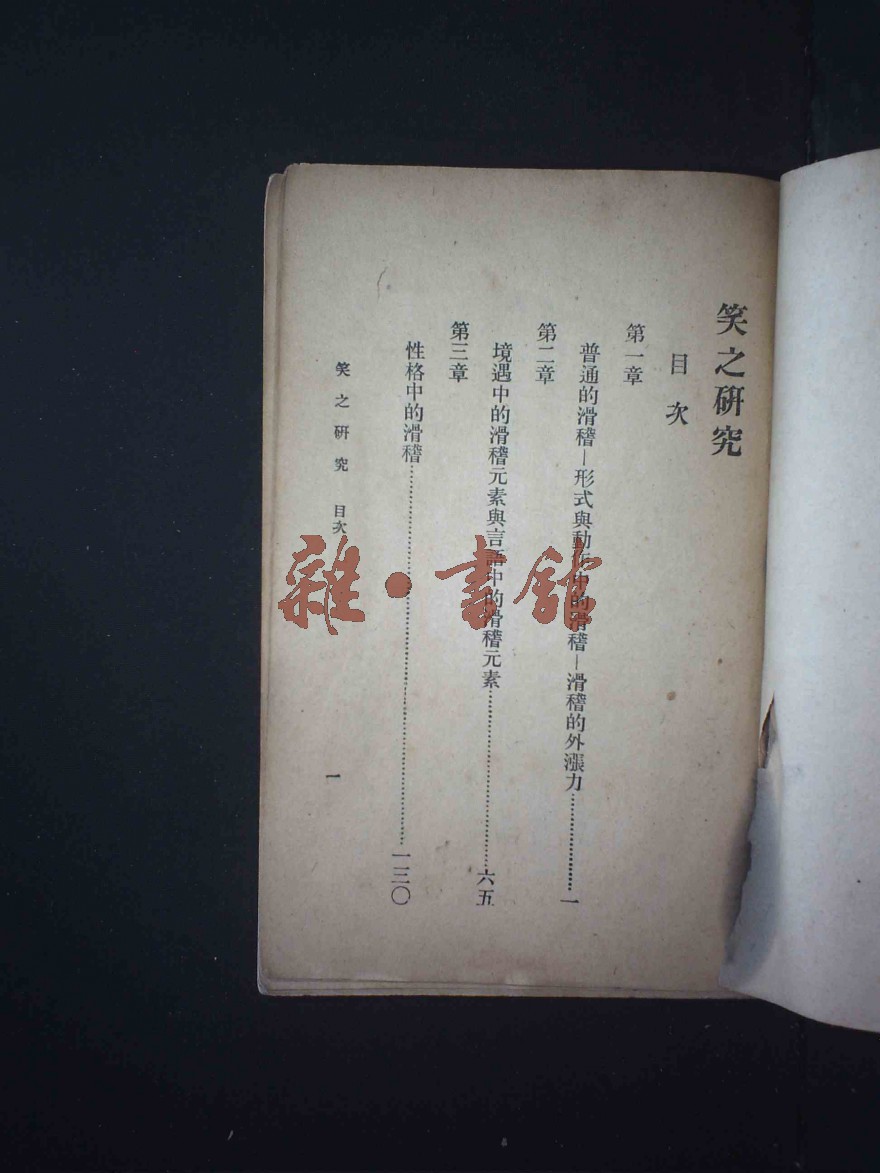 笑之研究
目次
第一章
普通的滑稽—形式與動作中的滑稽—滑稽的外漲力……………………一
第二章
境遇中的滑稽元素與言語中的滑稽元素……………………六五
第三章
性格中的滑稽……………………一三〇
笑之研究 目次
一
雜·書館